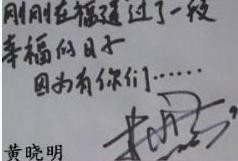 刚刚在福通过了一段
幸福的日子
因为有你们……
黄晓明